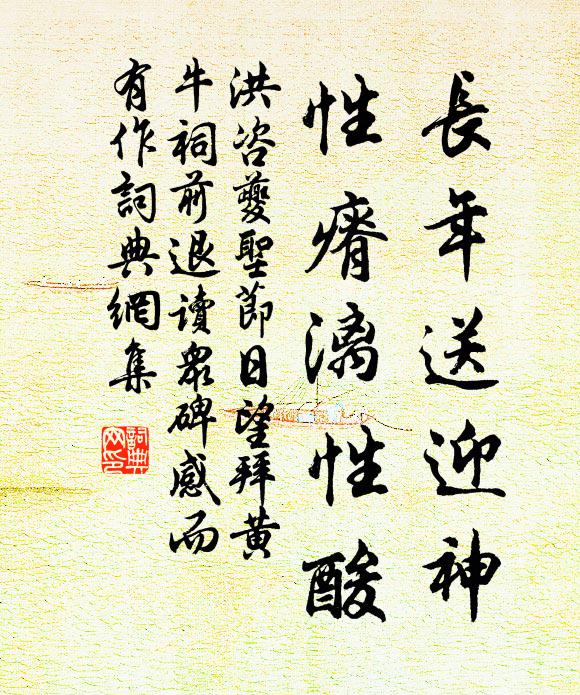 長年送迎神
性瘠漓性酸
洪咨夔聖節日望拜黃
牛祠前退讀眾碑感而
有作詞典網集
詞典
网印